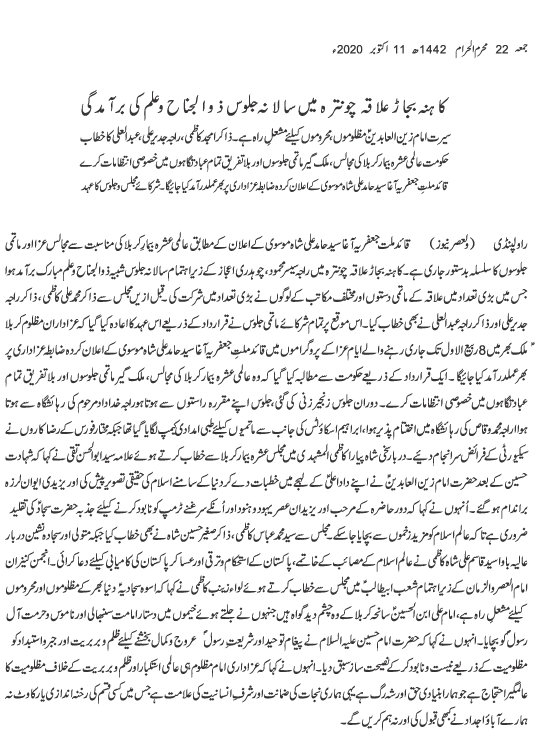 جمعہ 22 محرم الحرام 1442ھ 11 اکتوبر 2020ء
کاہنہ بجاڑ علاقہ چونترہ میں سالانہ جلوس ذوالجناح و علم کی برآمدگی
سیرت امام زین العابدینؑ مظلوموں، محروموں کیلئے مشعل راہ ہے۔ ذاکر امجد کاظمی، راجہ جدیر علی، عبدالعلی کا خطاب
حکومت عالمی عشرہ بیمارِ کربلا کی مجالس، ملک گیر ماتمی جلوسوں اور بلا تفریق تمام عبادتگاہوں میں خصوصی انتظامات کرے
قائد ملتِ جعفریہ آغا سید حامد علی شاہ موسوی کے اعلان کردہ ضابطہ عزاداری پر بھرعملدرآمد کیا جائیگا۔ شرکائے مجلس و جلوس کا عہد
راولپنڈی (ولعصر نیوز) قائد ملت جعفریہ آغا سید حامد علی شاہ موسوی کے اعلان کے مطابق عالمی عشرہ بیمارِ کربلا کی مناسبت سے مجالس عزا اور ماتمی
جلوسوں کا سلسلہ بدستور جاری ہے۔ کاہنہ بجاڑ علاقہ چونترہ میں راجہ بیسر محمود، چوہدری اعجاز کے زیر اہتمام سالانہ جلوس شبیہ ذوالجناح و علم مبارک برآمد ہوا
جس میں بڑی تعداد میں علاقہ کے ماتمی دستوں اور مختلف مکاتب کے لوگوں نے بڑی تعداد میں شرکت کی قبل ازیں مجلس سے ذاکر محمد علی کاظمی، ذاکر راجہ
جدیر علی اور ذاکر راجہ عبدالعلی نے بھی خطاب کیا۔ اس موقع پر تمام شرکائے ماتمی جلوس نے قرارداد کے ذریعے اس عہد کا اعادہ کیا گیا کہ عزاداران مظلوم کربلاؑ
ملک بھر میں 8 ربیع الاول تک جاری رہنے والے ایام عزا کے پروگراموں میں قائد ملتِ جعفریہ آغا سید حامد علی شاہ موسوی کے اعلان کردہ ضابطہ عزاداری پر
بھرعملدرآمد کیا جائیگا۔ ایک قرارداد کے ذریعے حکومت سے مطالبہ کیا گیا کہ وہ عالمی عشرہ بیمار کربلا کی مجالس، ملک گیر ماتمی جلوسوں اور بلا تفریق تمام
عبادتگاہوں میں خصوصی انتظامات کرے۔ دوران جلوس زنجیر زنی کی گئی، جلوس اپنے مقررہ راستوں سے ہوتا ہوا راجہ خداداد مرحوم کی رہائشگاہ سے ہوتا
ہوا راجہ محمد وقاص کی رہائشگاہ میں اختتام پذیر ہوا، ابراہیم اسکاؤٹس کی جانب سے ماتمیوں کیلئے طبی امدادی کیمپ لگایا گیا تھا جبکہ مختار فورس کے رضاکاروں نے
سیکیورٹی کے فرائض سرانجام دیئے۔ دربار سخی شاہ پیارا کاظمی المشہدی میں مجلس عشرہ بیمار کربلا سے خطاب کرتے ہوئے علامہ سید ابوالحسن تقی نے کہا کہ شہادت
حسین کے بعد حضرت امام زین العابدینؑ نے اپنے دادا علیؑ کے لہجے میں خطبات دے کر دنیا کے سامنے اسلام کی حقیقی تصویر پیش کی اور یزیدی ایوان لرزہ
براندام ہو گئے۔ اُنہوں نے کہا کہ دور حاضر کے مرحب اور یزیدان عصر یہود و ہنود اور اُنکے سرغنے ٹرمپ کو نابود کرنے کیلئے جذبہ حضرت سجادؑ کی تقلید
ضروری ہے تا کہ عالم اسلام کو مزید زخموں سے بچایا جا سکے۔ مجلس سے سید محمد عباس کاظمی، ذاکر صغیر حسین شاہ نے بھی خطاب کیا جبکہ متولی اور سجادہ نشین دربار
عالیہ باوا سید قاسم علی شاہ کاظمی نے عالم اسلام کے مصائب کے خاتمے، پاکستان کے استحکام و ترقی اور عساکر پاکستان کی کامیابی کیلئے دعا کرائی۔ انجمن کنیزان
امام العصر والزمان کے زیر اہتمام شعب ابیطالبؑ میں مجلس سے خطاب کرتے ہوئے لواء زینب کاظمی نے کہا کہ اسوہ سجادیہؑ دنیا بھر کے مظلوموں اور محروموں
کیلئے مشعل راہ ہے، امام علی ابن الحسینؑ سانحہ کربلا کے وہ چشم دید گواہ ہیں جنہوں نے جلتے ہوئے خیموں میں دستار امامت سنبھالی اور ناموس و حرمت آل
رسولؐ کو بچایا۔ انہوں نے کہا کہ حضرت امام حسین علیہ السلام نے پیغام توحید اور شریعتِ رسولؐ عروج و کمال بخشنے کیلئے ظلم و بربریت اور جبر و استبداد کو
مظلومیت کے ذریعے نیست و نابود کر کے نصیحت ساز سبق دیا۔ انہوں نے کہا کہ عزاداری امام مظلوم ہی عالمی استکبار اور ظلم و بربریت کے خلاف مظلومیت کا
عالمگیر احتجاج ہے جو ہمارا بنیادی حق اور شہ رگ ہے یہی ہماری نجات کی ضمانت اور شرفِ انسانیت کی علامت ہے جس میں کسی قسم کی رخنہ اندازی یا رکاوٹ نہ
ہمارے آباؤ اجداد نے کبھی قبول کی اور نہ ہم کریں گے۔